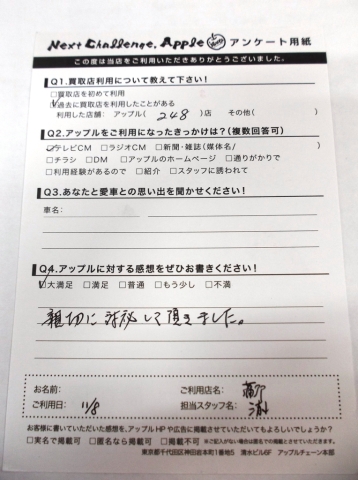 Next Challenge, Apple アンケート用紙
この度は当店をご利用いただきありがとうございました。
Q1.買取店利用について教えて下さい!
□買取店を初めて利用
☑過去に買取店を利用したことがある
利用した店舗: アップル( 248 )店 その他( )
Q2.アップルをご利用になったきっかけは?(複数回答可)
☑テレビCM □ラジオCM □新聞・雑誌(媒体名/ )
□チラシ □DM □アップルのホームページ □通りがかりで
□利用経験があるので □紹介 □スタッフに誘われて
Q3.あなたと愛車との思い出を聞かせください!
車名:
Q4.アップルに対する感想をぜひお書きください!
☑大満足 □満足 □普通 □もう少し □不満
親切に対応して頂きました。
お名前: ご利用店名:
ご利用日: 11/8 担当スタッフ名:
お客様に書いていただいた感想を、アップルHPや広告に掲載させていただいてもよろしいでしょうか?
□実名で掲載可 □匿名なら掲載可 □掲載不可 ※ご記入がない場合は匿名での掲載とさせていただきます。
東京都千代田区神田岩本町1番地5 清水ビル6F アップルチェーン本部